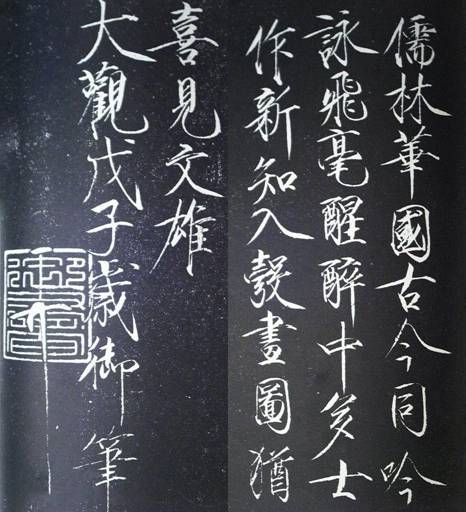 儒林華國古今同吟
詠飛毫醒醉中多士
作新知入彀畫圖猶
喜見文雄
大觀戊子歲御筆